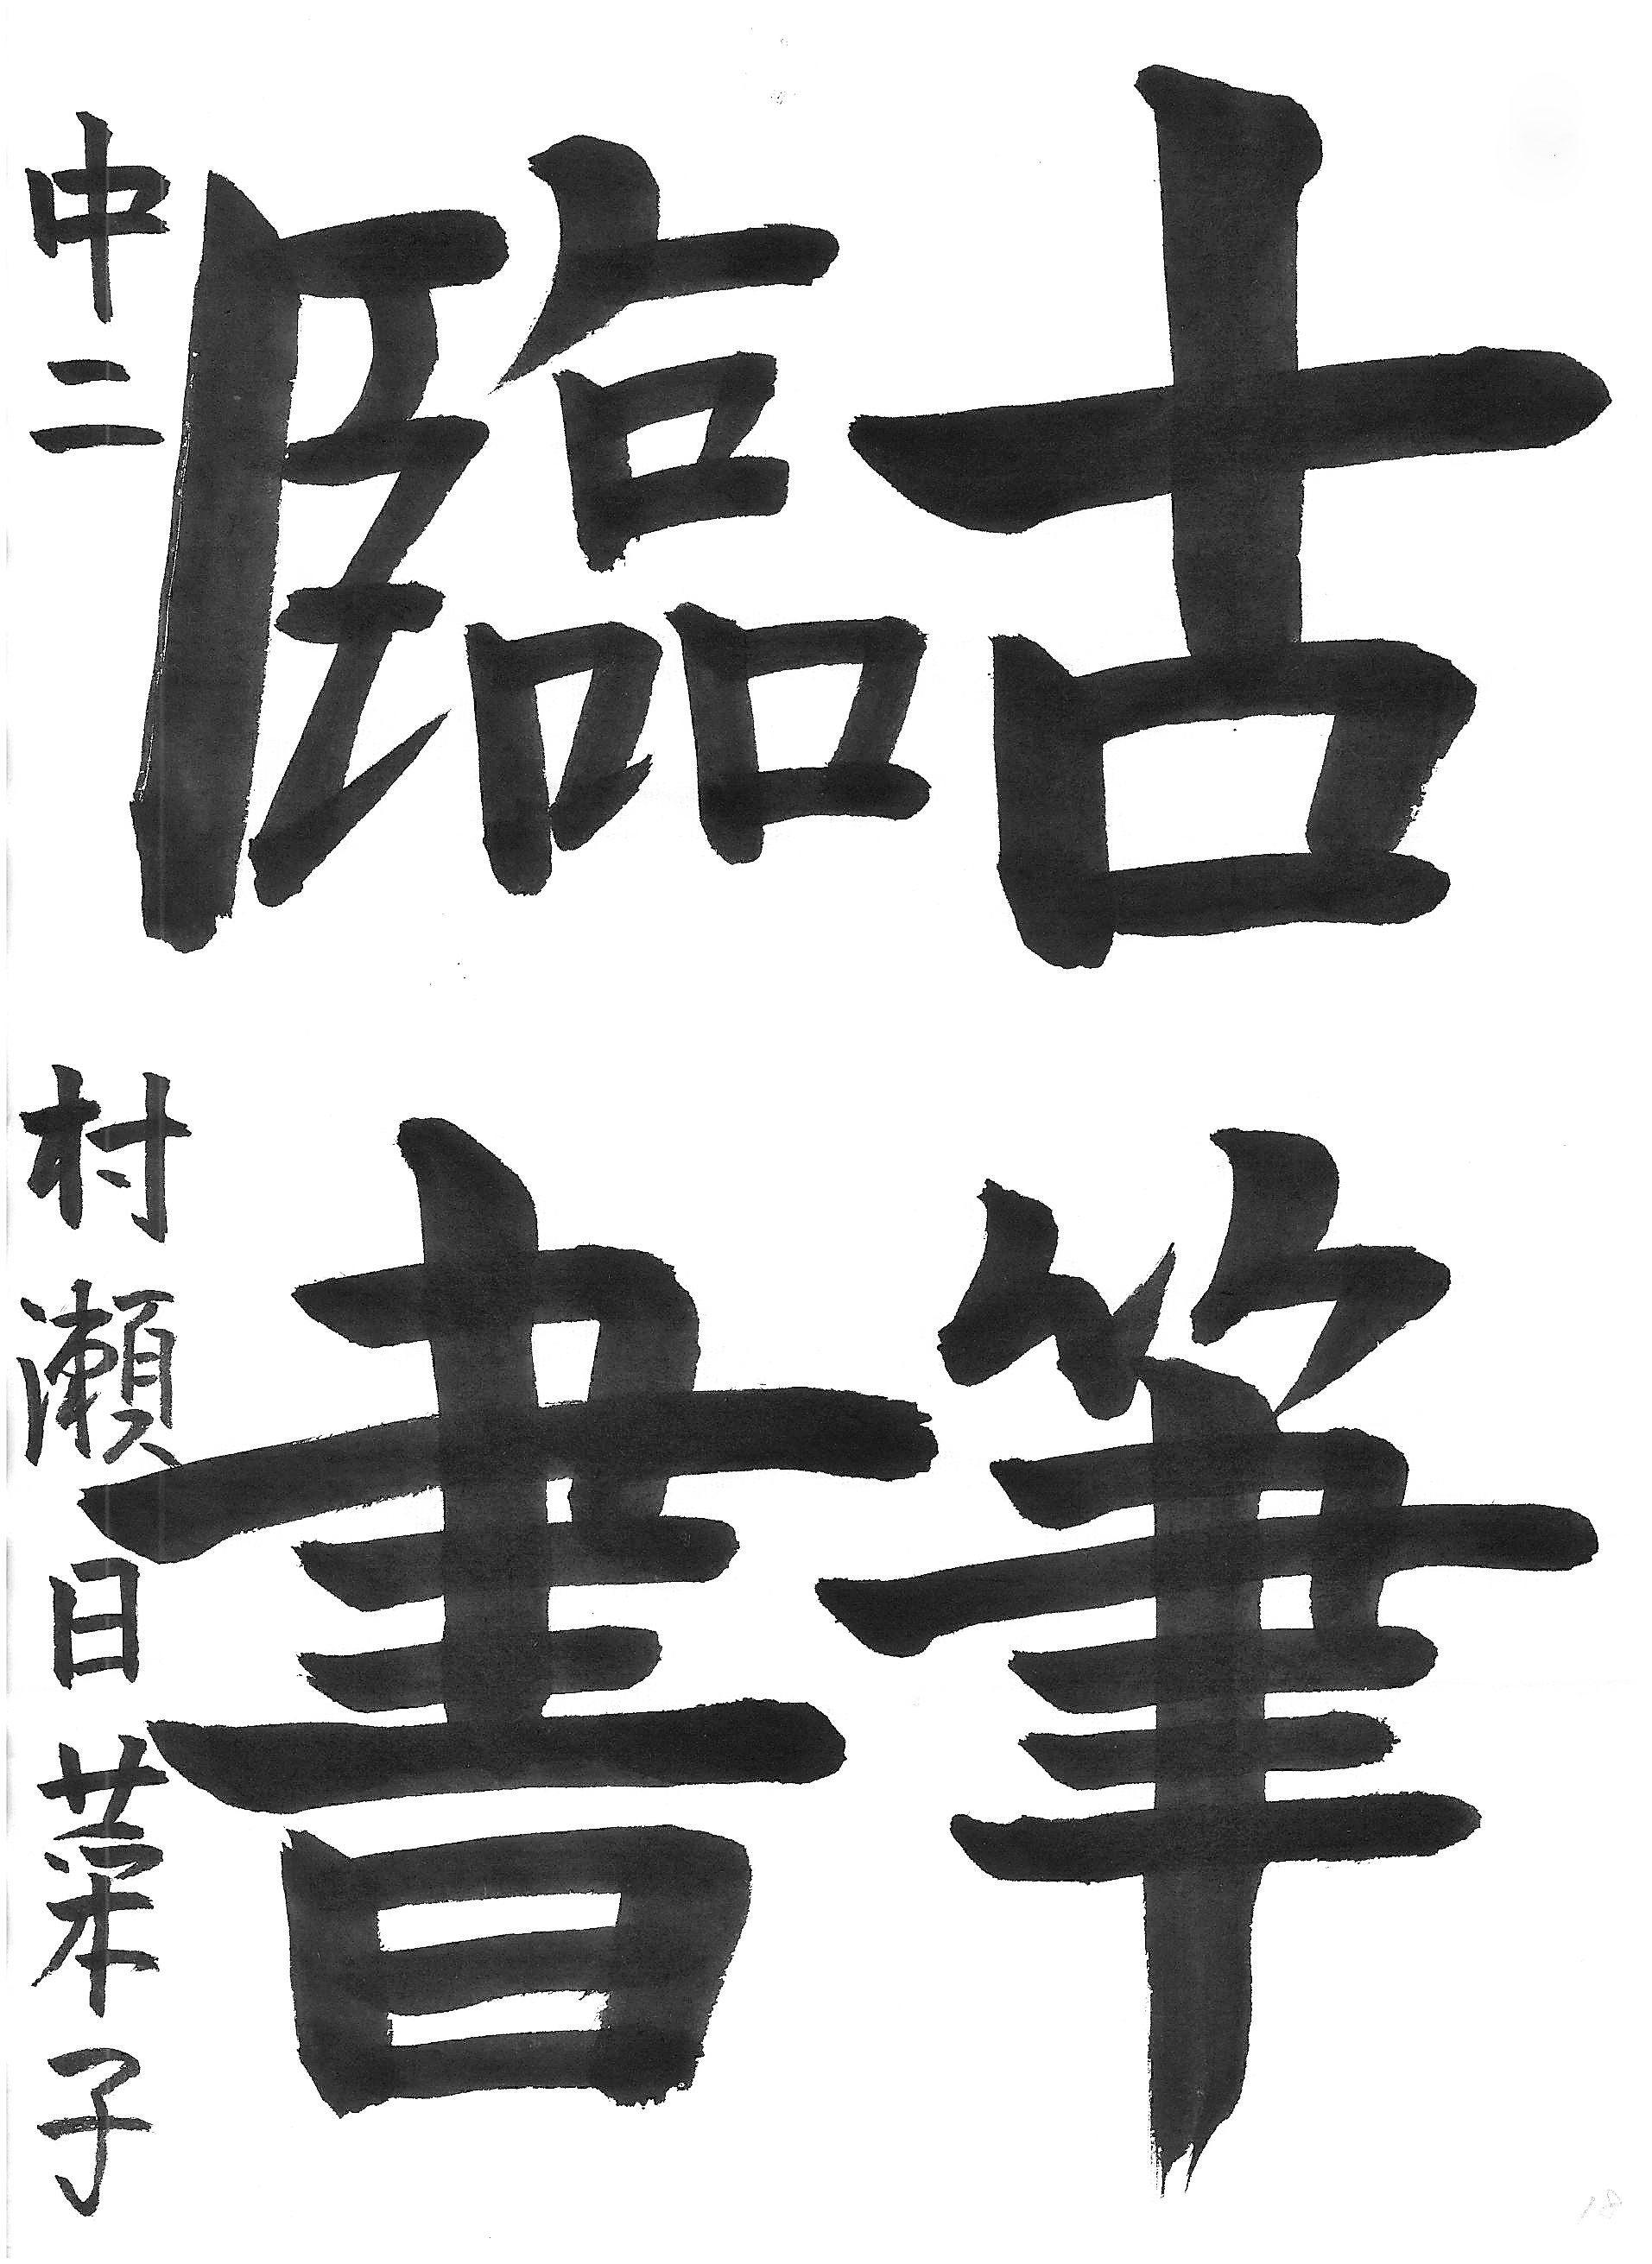 古筆
臨書
中二 村瀬日菜子